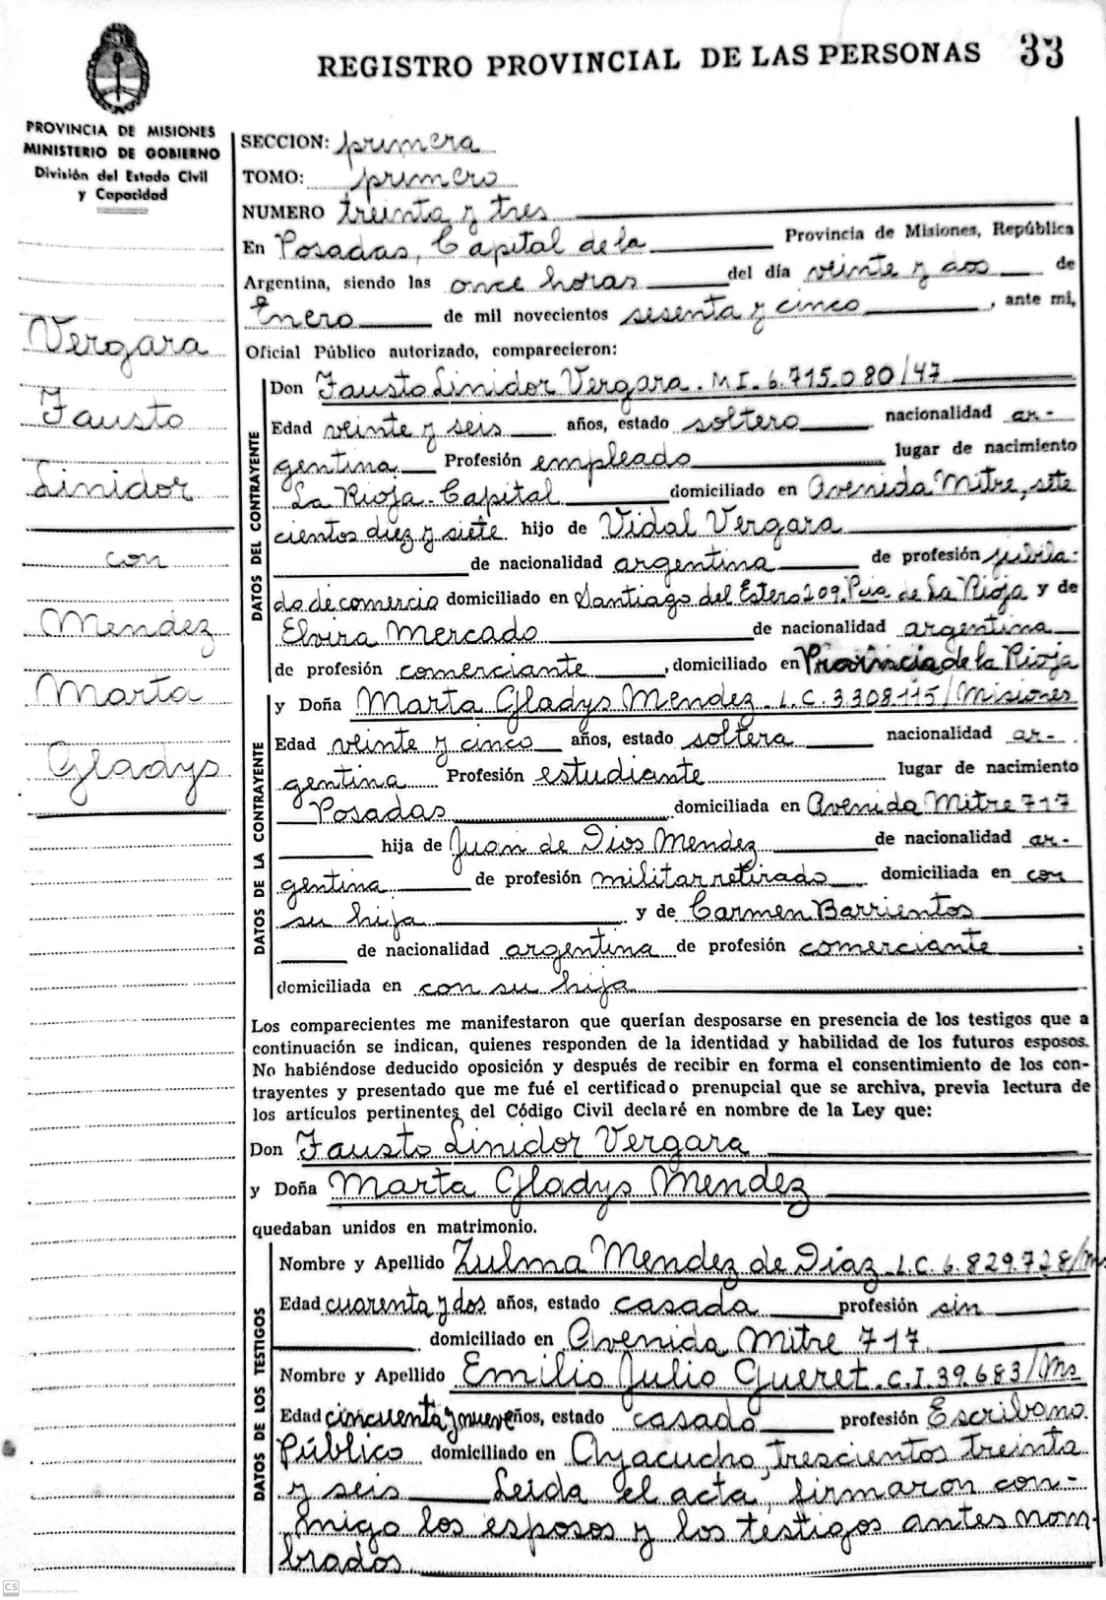 REGISTRO PROVINCIAL DE LAS PERSONAS 33
PROVINCIA DE MISIONES
MINISTERIO DE GOBIERNO
División del Estado Civil
y Capacidad
Vergara
Fausto
Linidor
con
Mendez
Marta
Gladys
SECCION: primera
TOMO: primero
NUMERO treinta y tres
En Posadas, Capital de la Provincia de Misiones, República
Argentina, siendo las once horas del día veinte y dos de
Enero de mil novecientos sesenta y cinco, ante mi,
Oficial Público autorizado, comparecieron:
DATOS DEL CONTRAYENTE
Don Fausto Linidor Vergara. M I. 6.715.080/47
Edad veinte y seis años, estado soltero nacionalidad ar-
gentina Profesión empleado lugar de nacimiento
La Rioja-Capital domiciliado en Avenida Mitre, sete
cientos diez y siete hijo de Vidal Vergara
de nacionalidad argentina de profesión jubila-
do de comercio domiciliado en Santiago del Estero 209. Pcia de La Rioja y de
Elvira Mercado de nacionalidad argentina
de profesión comerciante, domiciliado en Provincia de la Rioja
DATOS DE LA CONTRAYENTE
y Doña Marta Gladys Mendez. L.C. 3.308.115/Misiones
Edad veinte y cinco años, estado soltera nacionalidad ar-
gentina Profesión estudiante lugar de nacimiento
Posadas domiciliada en Avenida Mitre 717
hija de Juan de Dios Mendez de nacionalidad ar-
gentina de profesión militar retirado domiciliada en con
su hija y de Carmen Barrientos
de nacionalidad argentina de profesión comerciante,
domiciliada en con su hija
Los comparecientes me manifestaron que querían desposarse en presencia de los testigos que a
continuación se indican, quienes responden de la identidad y habilidad de los futuros esposos.
No habiéndose deducido oposición y después de recibir en forma el consentimiento de los con-
trayentes y presentado que me fué el certificado prenupcial que se archiva, previa lectura de
los artículos pertinentes del Código Civil declaré en nombre de la Ley que:
Don Fausto Linidor Vergara
y Doña Marta Gladys Mendez
quedaban unidos en matrimonio.
DATOS DE LOS TESTIGOS
Nombre y Apellido Zulma Mendez de Diaz L.C. 6.829.728/Ms
Edad cuarenta y dos años, estado casada profesión sin
domiciliado en Avenida Mitre 717
Nombre y Apellido Emilio Julio Gueret. C.I. 39.683/Ms
Edad cincuenta y nueve años, estado casado profesión Escribano
Público domiciliado en Ayacucho, trescientos treinta
y seis Leida el acta, firmaron con-
migo los esposos y los testigos antes nom-
brados
CS